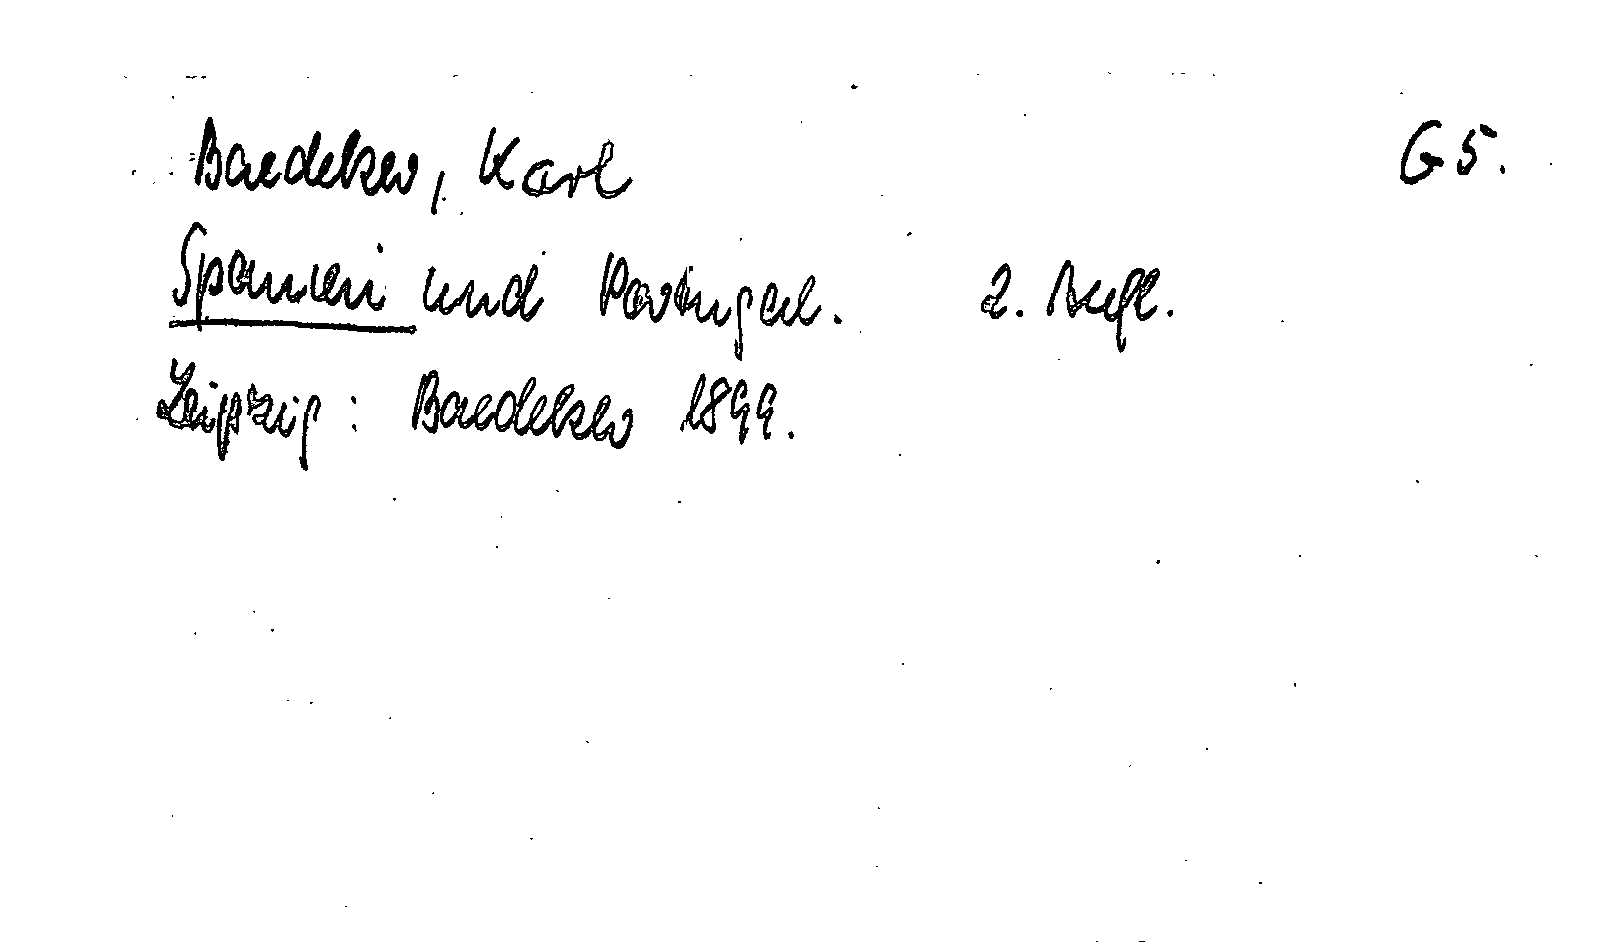 Baedeker, Karl G 5.
Spanien und Portugal. 2. Aufl.
Leipzig: Baedeker 1899.